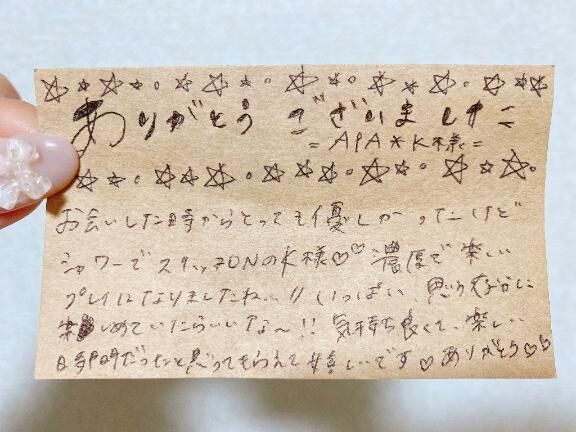 ありがとうございました
= APA★K様 =
お会いした時からとっても優しかったけど
シャワーでスイッチONのK様♡♡ 濃厚で楽しい
プレイになりましたね、、!! いっぱい
楽しめていたらいいな〜!! 気持ち良くて、楽しい
時間だったと思ってもらえて嬉しいです♡ ありがとう♡♡